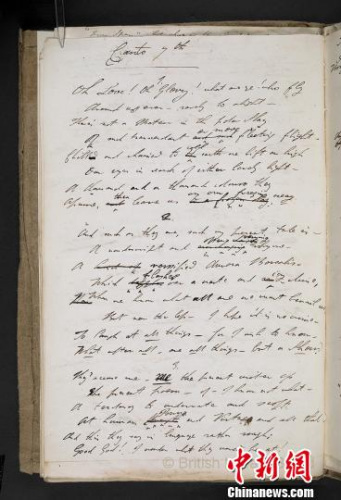 Canto 7th
Oh Love! Oh Glory! what are ye! who fly
Around us ever—rarely to alight—
There's not a Meteor in the polar Sky
Of such transcendent and more fleeting flight—
Chill and chained to cold earth we lift on high
Our eyes in search of either lovely light—
A thousand and a thousand colours they
Assume, then leave us on our freezing way
2.
And such as they are, such my present tale is—
A nondescript and ever varying rhyme—
A versified Aurora Borealis
Which flashes o'er a waste and icy clime,
When we know what all are we must bewail us
But ne'er the less—I hope it is no crime
To laugh at all things—for I wish to know
What after all, are all things—but a Show.
3.
They accuse me—Me the present writer of
The present poem—of—I know not what—
A tendency to underrate and scoff
At human power and Virtue and all that
And this they say in language rather rough,
Good God! I wonder what they would be at!
© British
中新网
www.chinanews.com